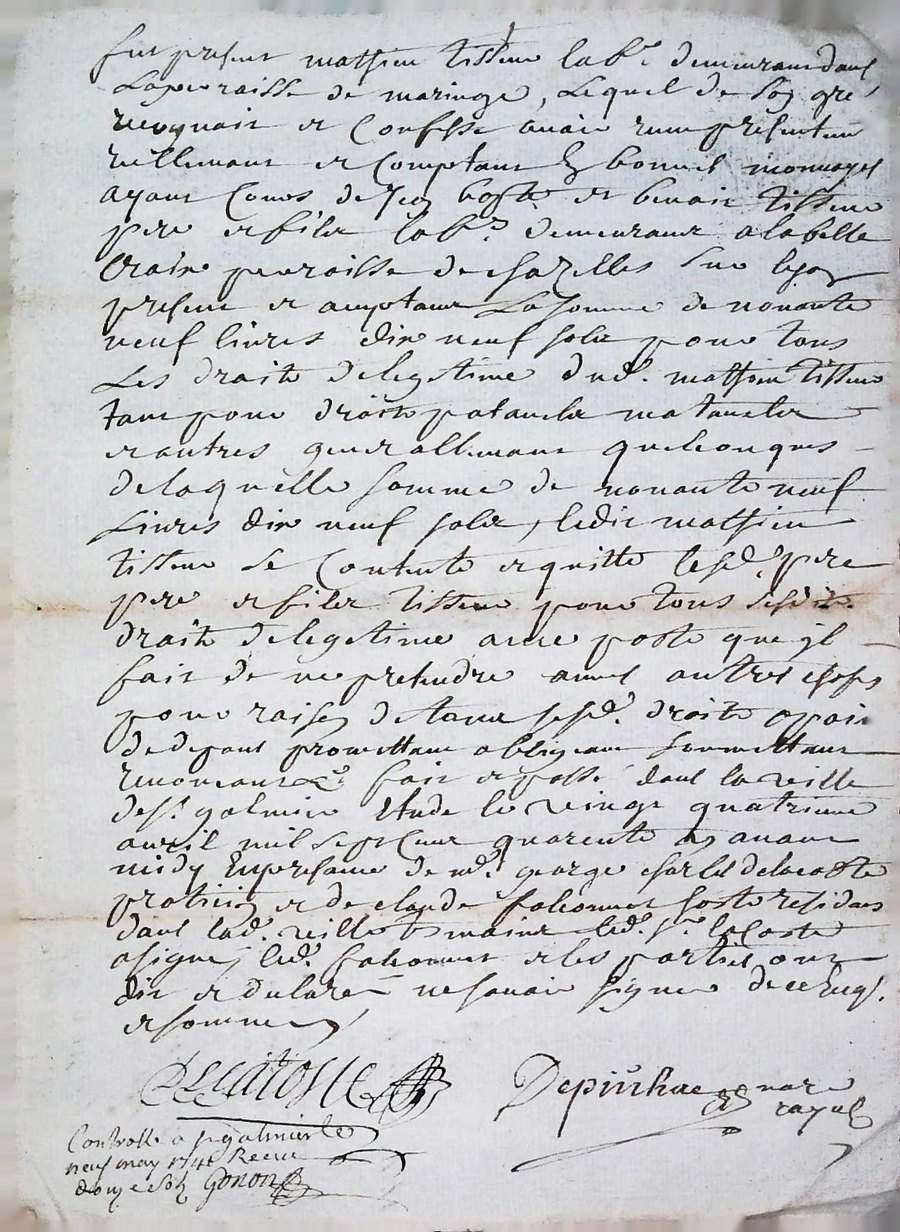 fut present mathieu tisseur lab.r demeurant dans
La parraisse de maringe, Lequel de son gre
recognait et Confesse avair reeu presentem
reellemant et Comptant En bonnes monnayes
ayant Cours de Jean baptte et benait tisseur
pere et fils lab.rs demeurans a la belle
Craix parraisse de chazelles sur lyon
present et aceptant La somme de nonante
neuf livres dix neuf sols pour tous
Les draits de legetime dud. mathieu tisseur
tant pour draits patarnels matarnels
et autres generallemant quelconques
de laquelle somme de nonante neuf
Livres dix neuf sols, ledit mathieu
tisseur se Contente et quitte lesd. pere
pere et fils tisseur pour tous sesdits
draits de legetime avec pacte que jl
fait de ne pretendre aucunes autres choses
pour raison de tous sesd. draits a pair
de depans promettant obligeant soumettant
renonceant &c fait et passé dans la ville
de S.t galmier Etude le vingt quatrieme
avril mil sept cent quarente un avant
midy En presance de m.e george charles delacoste
praticien et de claude falconnet hoste residans
dans lad. ville temains led. S.r lacoste
a signé, led. falconnet et les parties ont
dit et declaré ne savair signer de ce Enq.
et sommes
Delacoste
Depinhac nore
rayal
Controllé a S.t galmier le
neuf may 1741 Receu
douze sols Gonon